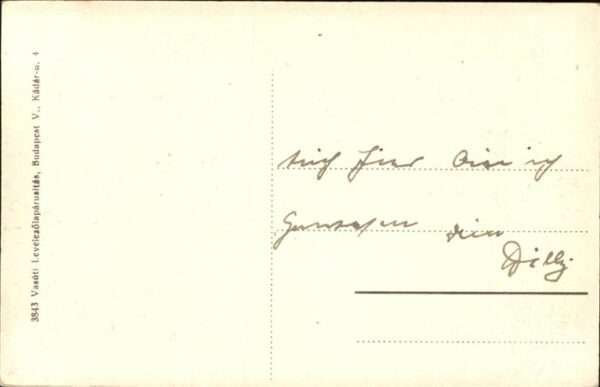 3843 Vasúti Levelezőlapárusitás, Budapest V., Kádár-u. 4
Auch hier bin ich
Gewesen dein
Willy